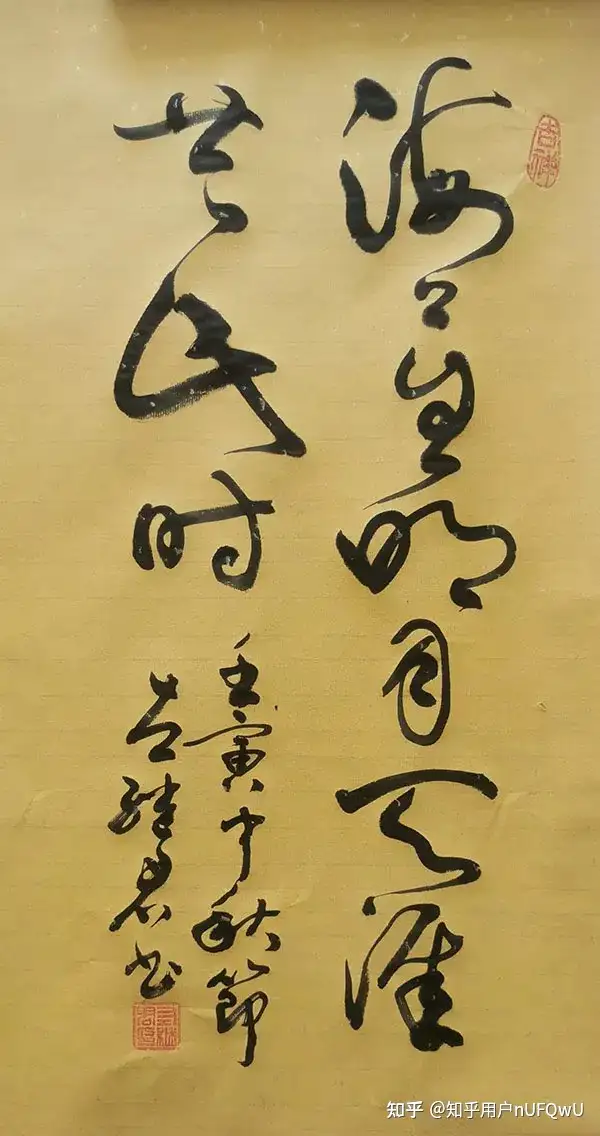 海上生明月天涯
共此时
壬寅中秋節
继君书
吉祥
知乎 @知乎用户nUFQwU